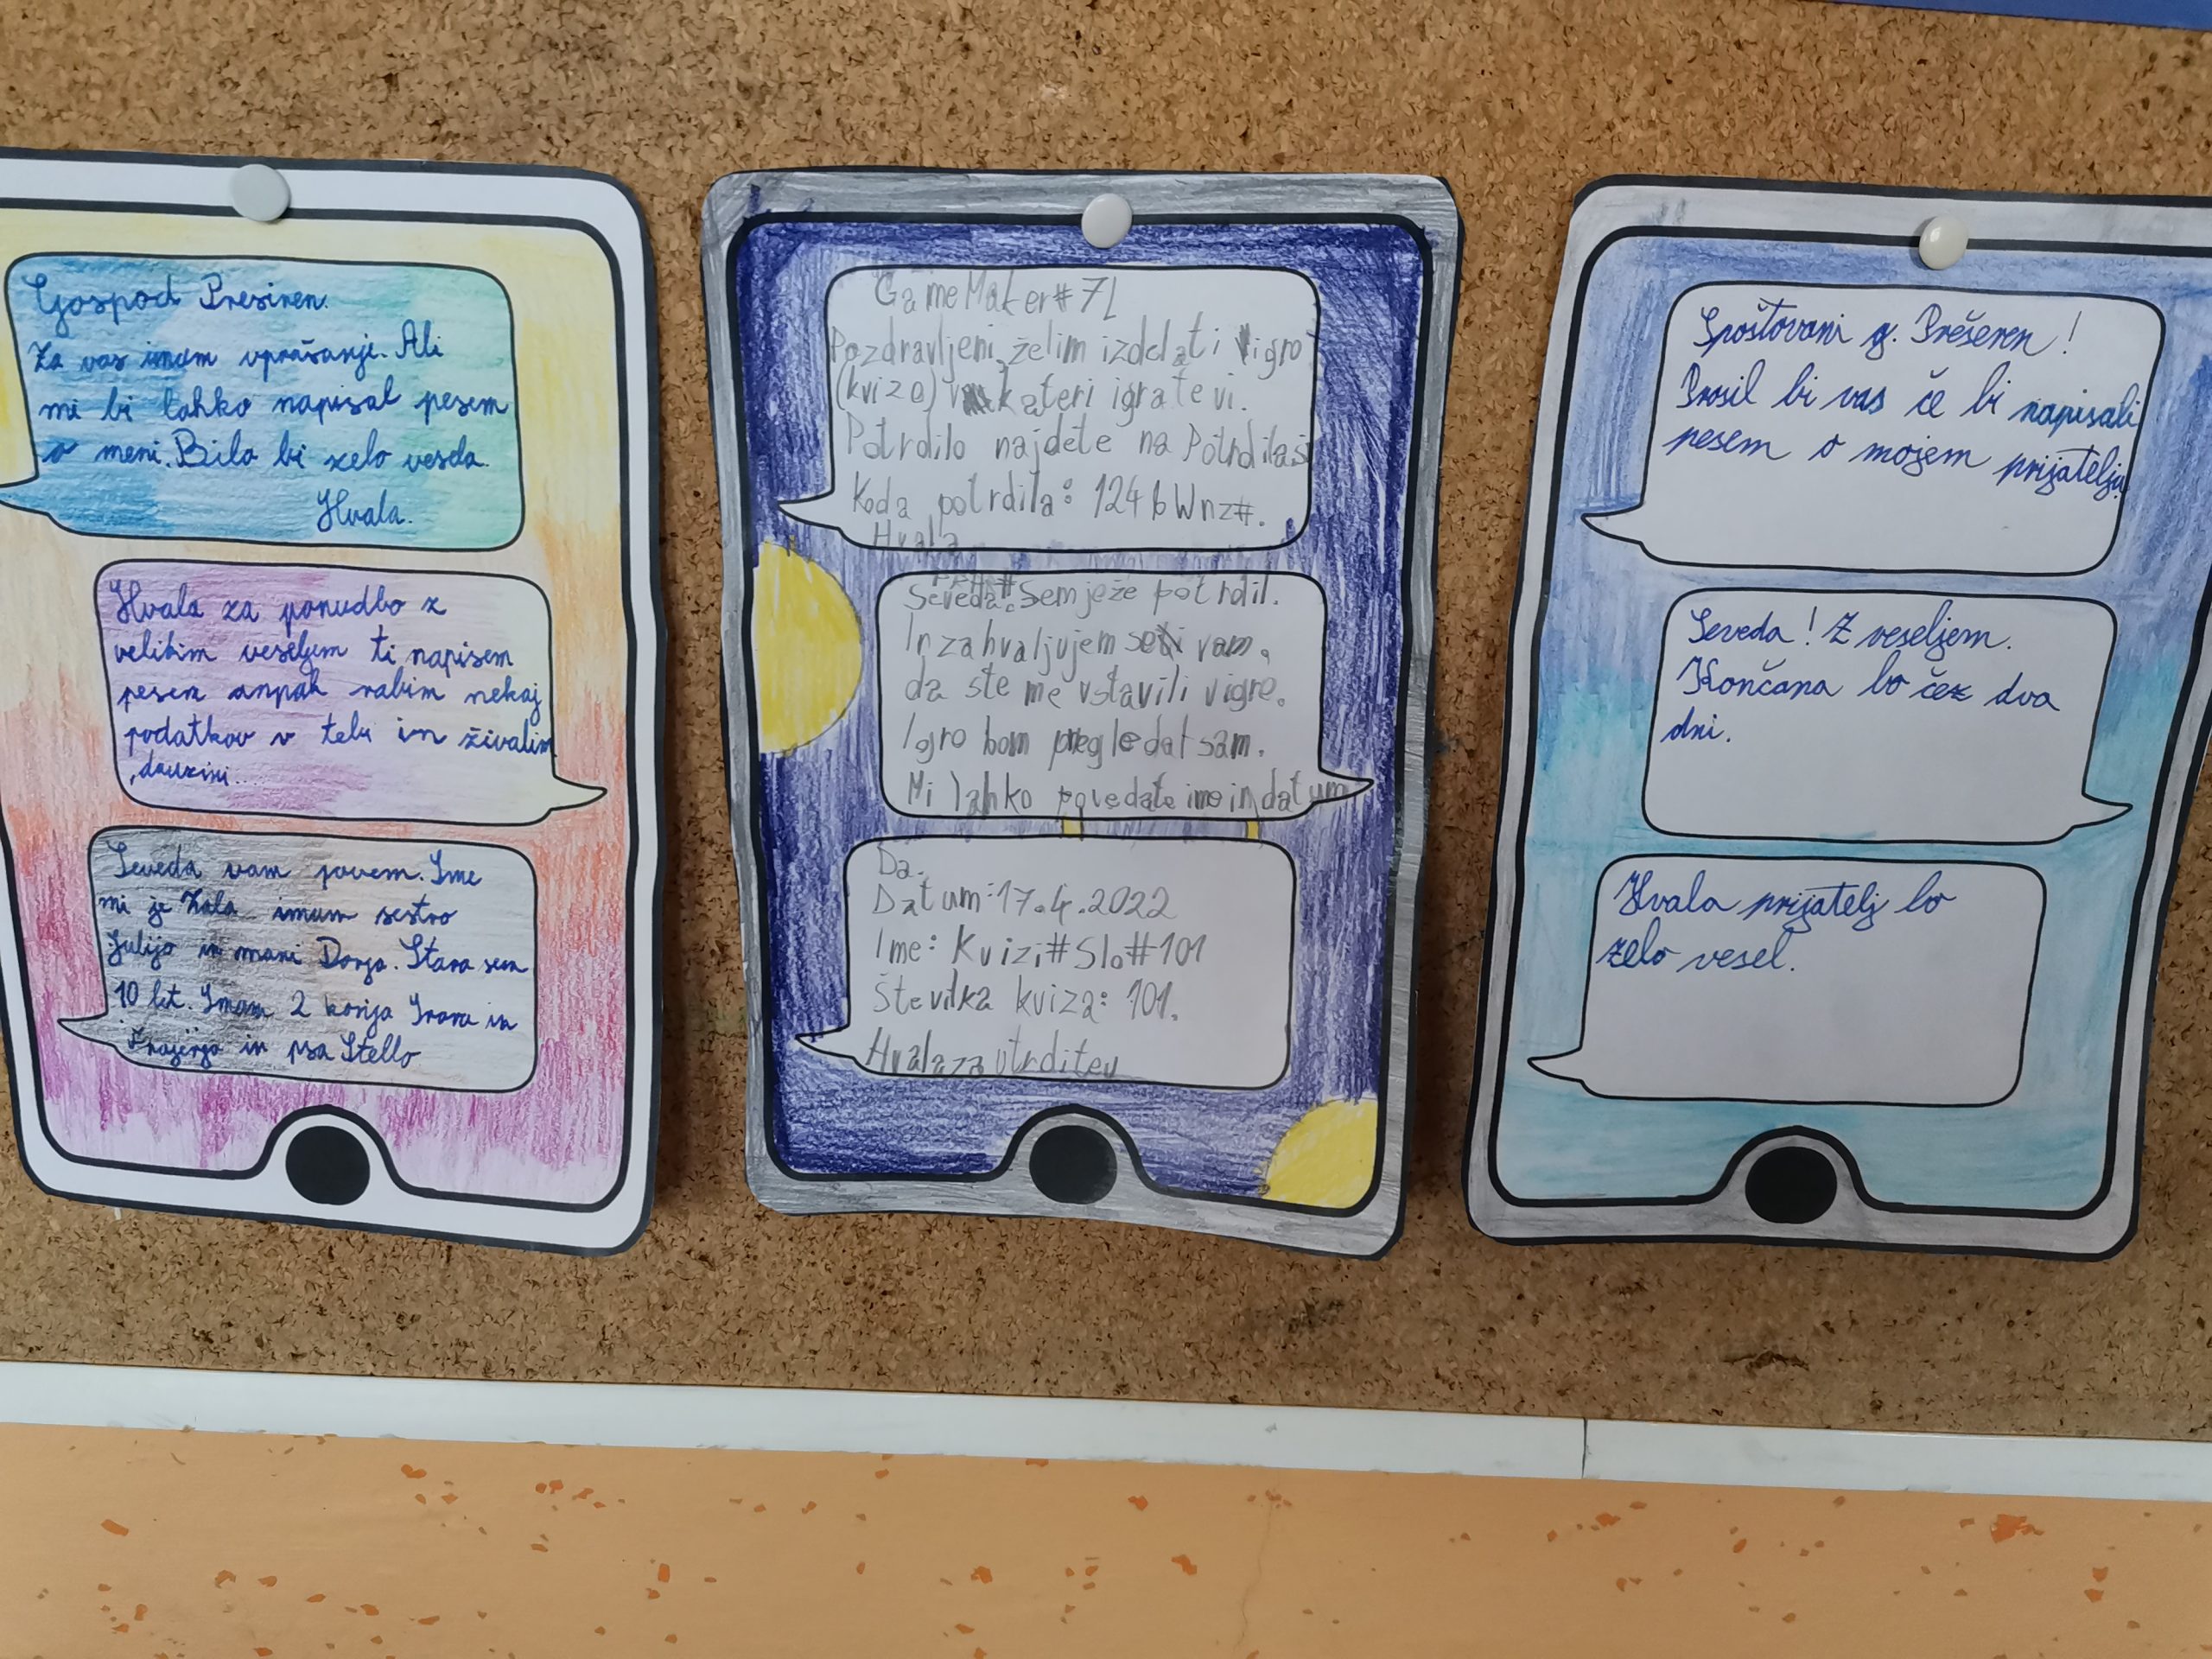 Gospod Presiren.
Za vas imam vprašanje. Ali
mi bi lahko napisal pesem
o meni. Bila bi zelo vesela.
Hvala.
Hvala za ponudbo z
velikim veseljem ti napisem
pesem anpak rabim nekaj
podatkov o tebi in živalim
, dauzini...
Seveda vam povem. Ime
mi je Zala imam sestro
Julijo in mami Donjo. Stara sem
10 let. Imam 2 konja in
in psa Stello
GameMaker#7L
Pozdravljeni, želim izdelati igro
(kvize) v kateri igrate vi.
Potrdilo najdete na
Koda potrdila: 1246Wnz#.
Hvala
Seveda. Sem je že potrdil.
In zahvaljujem se vam,
da ste me vstavili v igro.
Igro bom pregledat sam.
Mi lahko povedate ime in datum
Da.
Datum: 17.4.2022
Ime: Kvizi#Slo#101
Številka kviza: 101.
Hvala za utrditev
Spoštovani g. Prešeren!
Prosil bi vas če bi napisali
pesem o mojem prijatelju.
Seveda! Z veseljem.
Končana bo čez dva
dni.
Hvala prijatelj bo
zelo vesel.